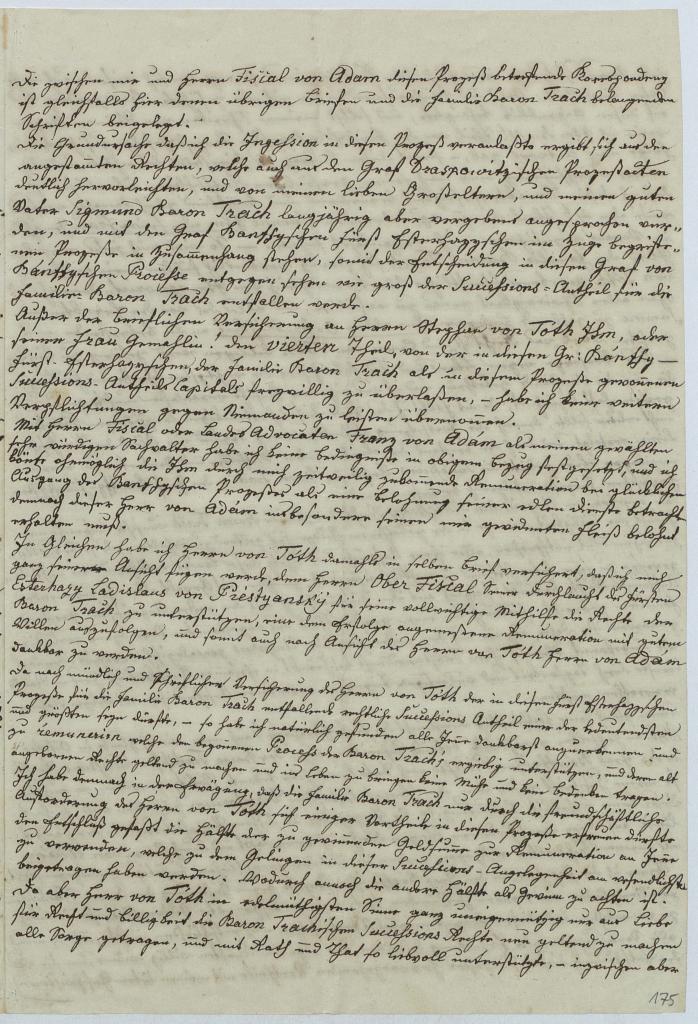 Die zwischen mir und Herrn Fisial von Adam diesen Prozeß betreffende Korrespondenz
ist gleichfalls hier denen übrigen Briefen und die Familie Baron Trach belangenden
Schriften beigelegt.-
Die Grundursache daß ich die Ingession in diesen Prozeß veranlaßte ergibt sich aus den
angestammten Rechten, welche auch aus den Graf Draspowitzischen Prozeßacten
deutlich hervorleichten, und von meinen lieben Großeltern, und meinen guten
Vater Sigmund Baron Trach langjährig aber vergebens angesprochen wur-
den, und mit den Graf Banffyschen Fürst Esterhazyschen im Zuge begriffe-
nen Prozeße in Zusammenhang stehen, somit der Entscheidung in diesen Graf von
Banffyschen Processe entgegen sehen wie groß der Successions-Antheil für die
Familie Baron Trach entfallen werde.
Außer der brieflichen Versicherung an Herrn Stephan von Toth Ihm, oder
seiner Frau Gemahlin! den vierten Theil, von der in diesen Gr: Banffy-
Fürst-Esterhazyschen, der Familie Baron Trach als in diesem Prozeße gewonnenen
Successions-Antheils Capitals freywillig zu überlaßen, - habe ich keine weitern
Verpflichtungen gegen Niemanden zu leisten übernommen.
Mit Herrn Fisial oder Landes Advocaten Franz von Adam als meinen gewählten
sehr würdigen Sachwalter habe ich keine Bedingniße in obigen Bezug festgesetzt, und ich
die Ihm durch mich zeitweilig zukomende Remuneration bei glücklichen
Ausgang des Banffyschen Prozeßes als eine Belohnung seiner edlen Dienste betrachte
demnach dieser Herr von Adam insbesondere seinen mir gewidmeten Fleiß belohnt
erhalten muß.
In Gleichen habe ich Herrn von Toth damahls in selben Brief versichert, daß ich mich
ganz seiner Ansicht fügen werde, dem Herrn Ober Fisial Seiner Durchlaucht des Fürsten
Esterhazy Ladislaus von Prestyansky für seine vollwichtige Mithilfe die Rechte der
Baron Trach zu unterstützen, eine dem Erfolge angemessene Remuneration mit gutem
Willen auszufolgen, und somit auch nach Ansicht des Herrn von Toth Herrn von Adam
dankbar zu werden.
Da nach mündlich und schriftlicher Versicherung des Herrn von Toth der in diesen Fürst Esterhazyschen
Prozeße für die Familie Baron Trach entfallende rechtliche Successions Antheil einer der bedeutendsten
und größten seyn dürfte, - so habe ich natürlich gefunden alle Jene dankbarst anzuerkennen und
zu remuneriren welche den begonnenen Process der Baron Trachs ergiebig unterstützen, und deren alt
angebornen Rechte geltend zu machen und ins Leben zu bringen keine Mühe und kein Bedenken tragen.
Ich habe demnach in der Erwägung, daß die Familie Baron Trach nur durch die freundschaftliche
Aufforderung des Herrn von Toth sich einiger Vortheile in diesen Prozeße erfreuen dürfte
den Entschluß gefaßt die Hälfte der zu gewinnenden Geldsumme zur Remuneration an Jene
zu verwenden, welche zu dem Gelingen in dieser Successions-Angelegenheit am wesendlichsten
beigetragen haben werden. Wodurch die andere Hälfte als Gewinn zu achten ist.
Da aber Herr von Toth in edelmüthigsten Sinne ganz uneigennützig nur aus Liebe
für Recht und Billigkeit die Baron Trachischen Successions Rechte nun geltend zu machen
alle Sorge getragen, und mit Rath und That so liebvoll unterstützte, - inzwischen aber
175